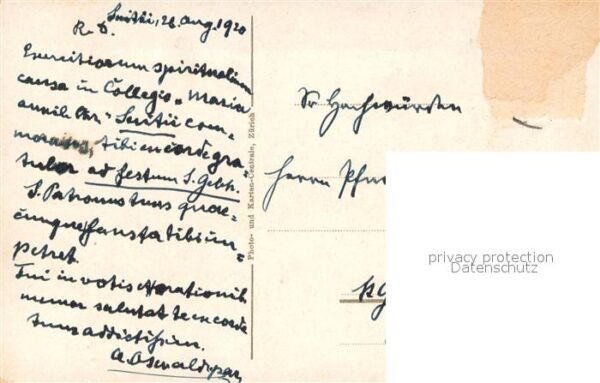 Suitii, 28. Aug. 1920
R. D.
Exercitiorum spiritualium
causa in Collegio "Maria
auxiliatr." Suitii com-
moratus, tibi ex corde gra-
tulor ad festum S. Gebh.
S. Patronus tuus quae-
cunque fausta tibi im-
petret.
Tui in votis et orationib.
memor salutat te ex corde
tuus addictissim.
A. Oswald, par.
Photo- und Karten-Centrale, Zürich
Sr Hochwürden
Herrn
privacy protection
Datenschutz